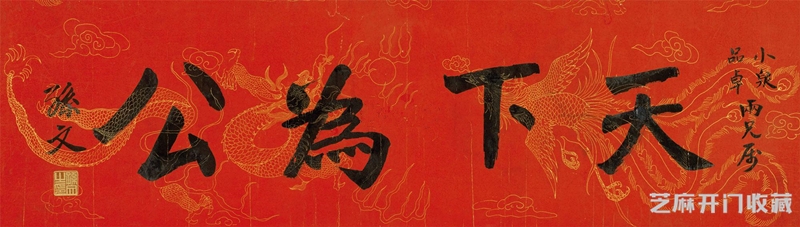 小泉
品卓 兩兄属
天下為公
孫文
芝麻开门收藏